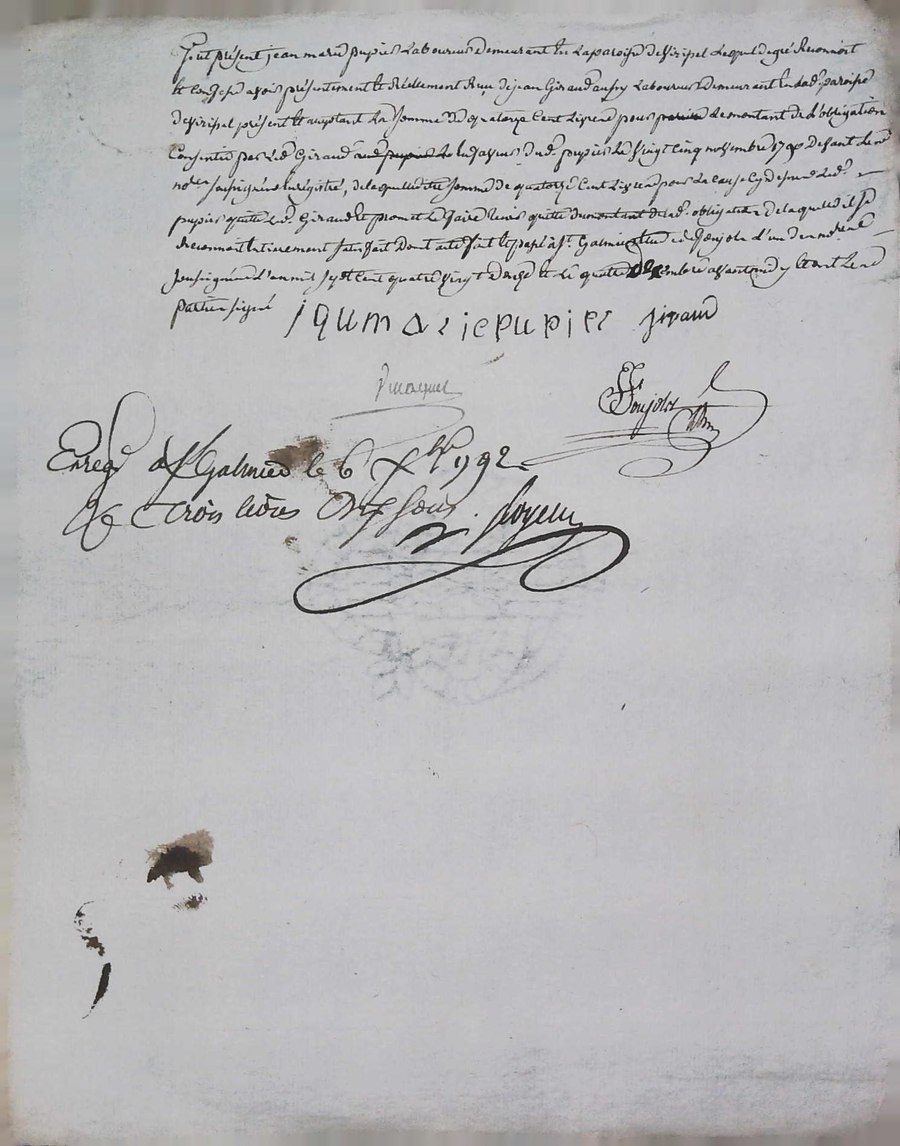 fut présent jean marie pupier Laboureur demeurant en La paroisse de Viricel Lequel de gré Reconnoit
et Confesse avoir présentement et Réellement Reçu de jean Giraud Laboureur demeurant en lad. paroisse
de Viricel présent et aceptant La somme de quatorze Cent Livres pour le montant de L'obligation
Consentie par Led. Giraud en faveur dud. pupier Le vingt cinq novembre 1790 devant Le né
nore soussigné Enregistré, de laquelle somme de quatorze Cent Livres pour La Cause Cydessus Led.
pupier quitte Led. Giraud et promet Le faire tenir quitte du montant de lad. obligation de laquelle il se
Reconnait Entierement satisfait dont acte fait et passé à St. Galmier Etude de Ronjola l'un des nores
soussignés L'an mil sept Cent quatre vingt douze et Le quatre Décembre avant midy et ont Les
parties signé
jqumariepupier giraud
Ronjola
Enregé à St Galmier le 6 Xbre 1792.
Rx trois livres Onze Sous.